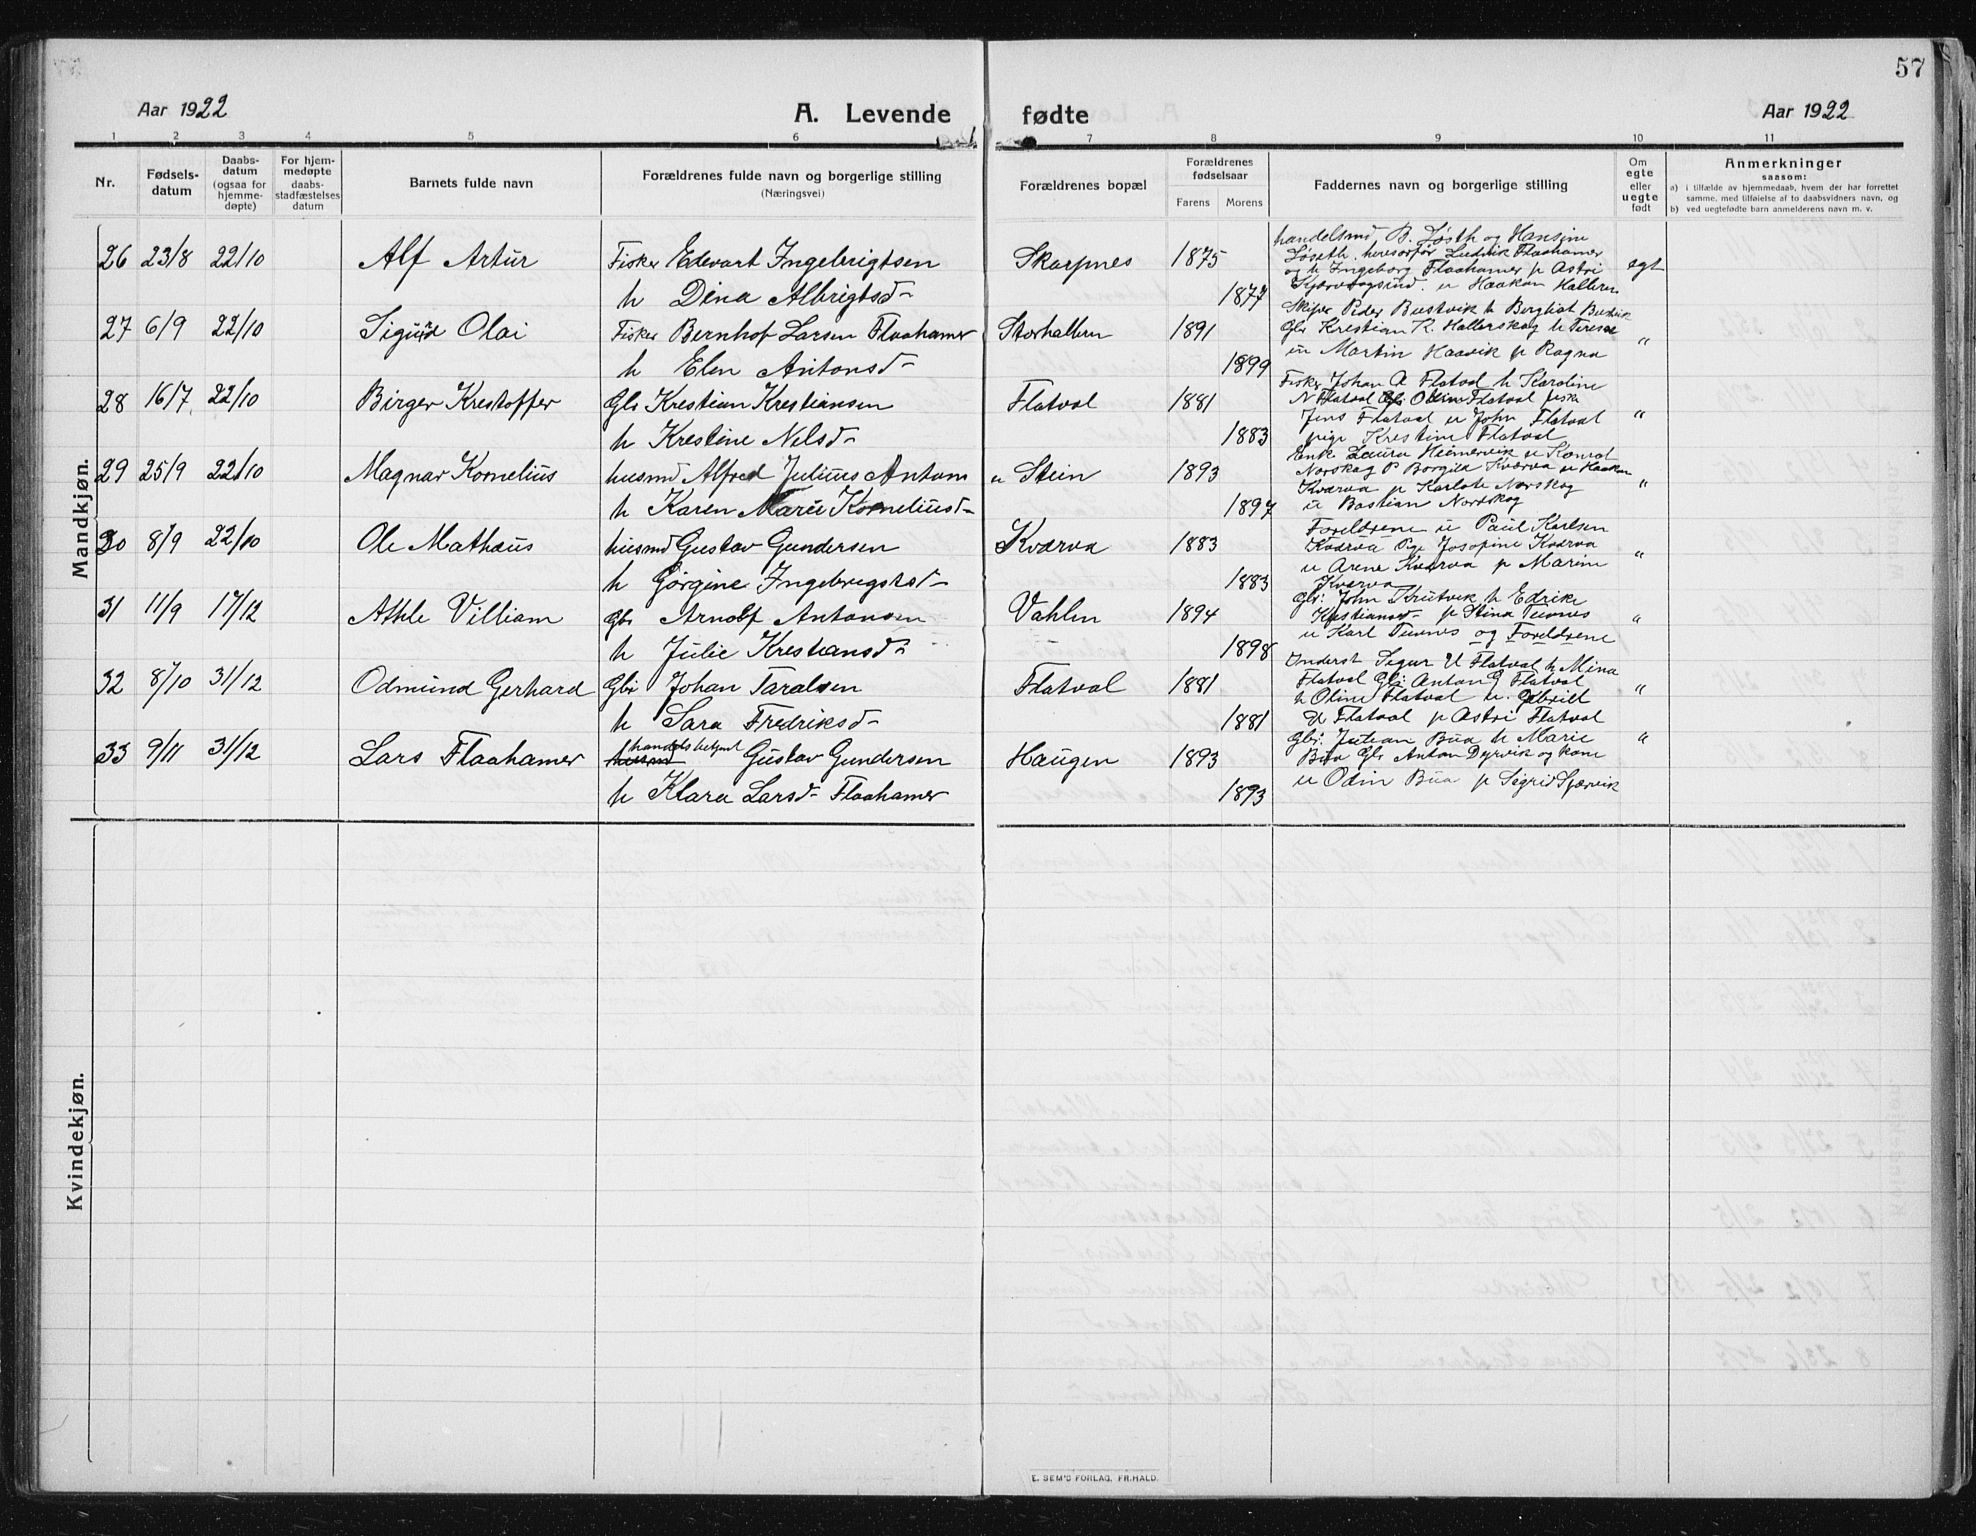 57
Aar 1922
A. Levende fødte
Aar 1922
1 2 3 4 5 6 7 8 9 10 11
Nr.
Fødsels-
datum
Daabs-
datum
(ogsaa for
hjemme-
døpte)
For hjem-
medøpte
daabs-
stadfæstelses
datum
Barnets fulde navn
Forældrenes fulde navn og borgerlige stilling
(Næringsvei)
Forældrenes bopæl
Forældrenes
fødselsaar
Farens Morens
Faddernes navn og borgerlige stilling
Om
egte
eller
uegte
født
Anmerkninger
saasom:
a) i tilfælde av hjemmedaab, hvem der har forrettet
samme, med tilføielse av to daabsvidners navn, og
b) ved uegtefødte barn anmelderens navn m. v.
Mandkjøn.
26 23/8 22/10 Alf Artur Fisker Edevart Ingebrigtsen Skarpnes 1875 egt
h Dina Albrigtsd- 1877
handelsmd B. Løsth og Hansine
Løseth, Ludvik Flaahamer
og h Ingeborg Flaahamer p Astri
u Haakon Halleren
27 6/9 22/10 Sigurd Olai Fisker Bernhof Larsen Flaahamer Storhallern 1891 "
h Elen Antonsd- 1899
Skifer Peder Bustvik h Bergliot Bustvik
Gbr Krestian K. Hallerskog h Terese
u Martin Haavik p Ragna
28 16/7 22/10 Birger Krestoffer Gbr Krestian Krestiansen Flatval 1881 "
h Krestine Nelsd- 1883
Fisker Johan A Flatval h Karoline
N Flatval Gbr Odin Flatval fisk
Jens Flatval u John Flatval
pige Krestine Flatval
29 25/9 22/10 Magnar Kornelius husmd Alfred Julius Antons u Stein 1893 "
h Karen Marie Korneliusd- 1897
Enk Laura Heimervik u Konrat
Norskag P Borgild Kværva u Haakon
Kværva p Karlote Norskog
u Bastian Nordskog
30 8/9 22/10 Ole Mathæus husmd Gustav Gundersen Kværva 1883 "
h Gørgine Ingebrigtsd- 1883
Foreldrene u Paul Karlsen
Kværva Pige Josefine Kværva
u Arene Kværva p Marin
Kværva
31 11/9 17/12 Athle Villiam Gbr Arnolf Antonsen Vahlen 1894 "
h Julie Krestiansd- 1898
Gbr: John Strutvik h Edrike
Krestiansd- p Stina Tuvnes
u Karl Tuvnes og Foreldrene
32 8/10 31/12 Odmund Gerhard Gbr Johan Taralsen Flatval 1881 "
h Sara Fredriksd- 1881
Inderst Sigur U Flatval h Mina
Flatval Gbr: Anton G Flatval
h Oline Flatval u. Gabriel
U Flatval p Astri Flatval
33 9/11 31/12 Lars Flaahamer handelsbetjent Gustav Gundersen Haugen 1893 "
h Klara Larsd- Flaahamer 1893
Gbr: Julian Bua h Marie
Bua Gbr Anton Dyrvik og kone
u Odin Bua p Sigrid Sjærvik
Kvindekjøn.
E. SEM'S FORLAG, FR.HALD.